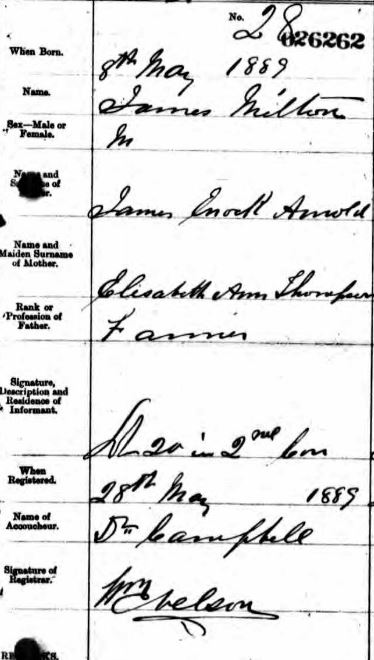 No. 28
026262
When Born.
8th May 1889
Name.
James Milton
Sex—Male or
Female.
M
Name and
of
James Enock Arnold
Name and
Maiden Surname
of Mother.
Elisabeth Ann Thompson
Rank or
Profession of
Father.
Farmer
Signature,
Description and
Residence of
Informant.
Lt 20 in 2nd Con
When
Registered.
28th May 1889
Name of
Accoucheur.
Dr Campbell
Signature of
Registrar.
Wm Nelson